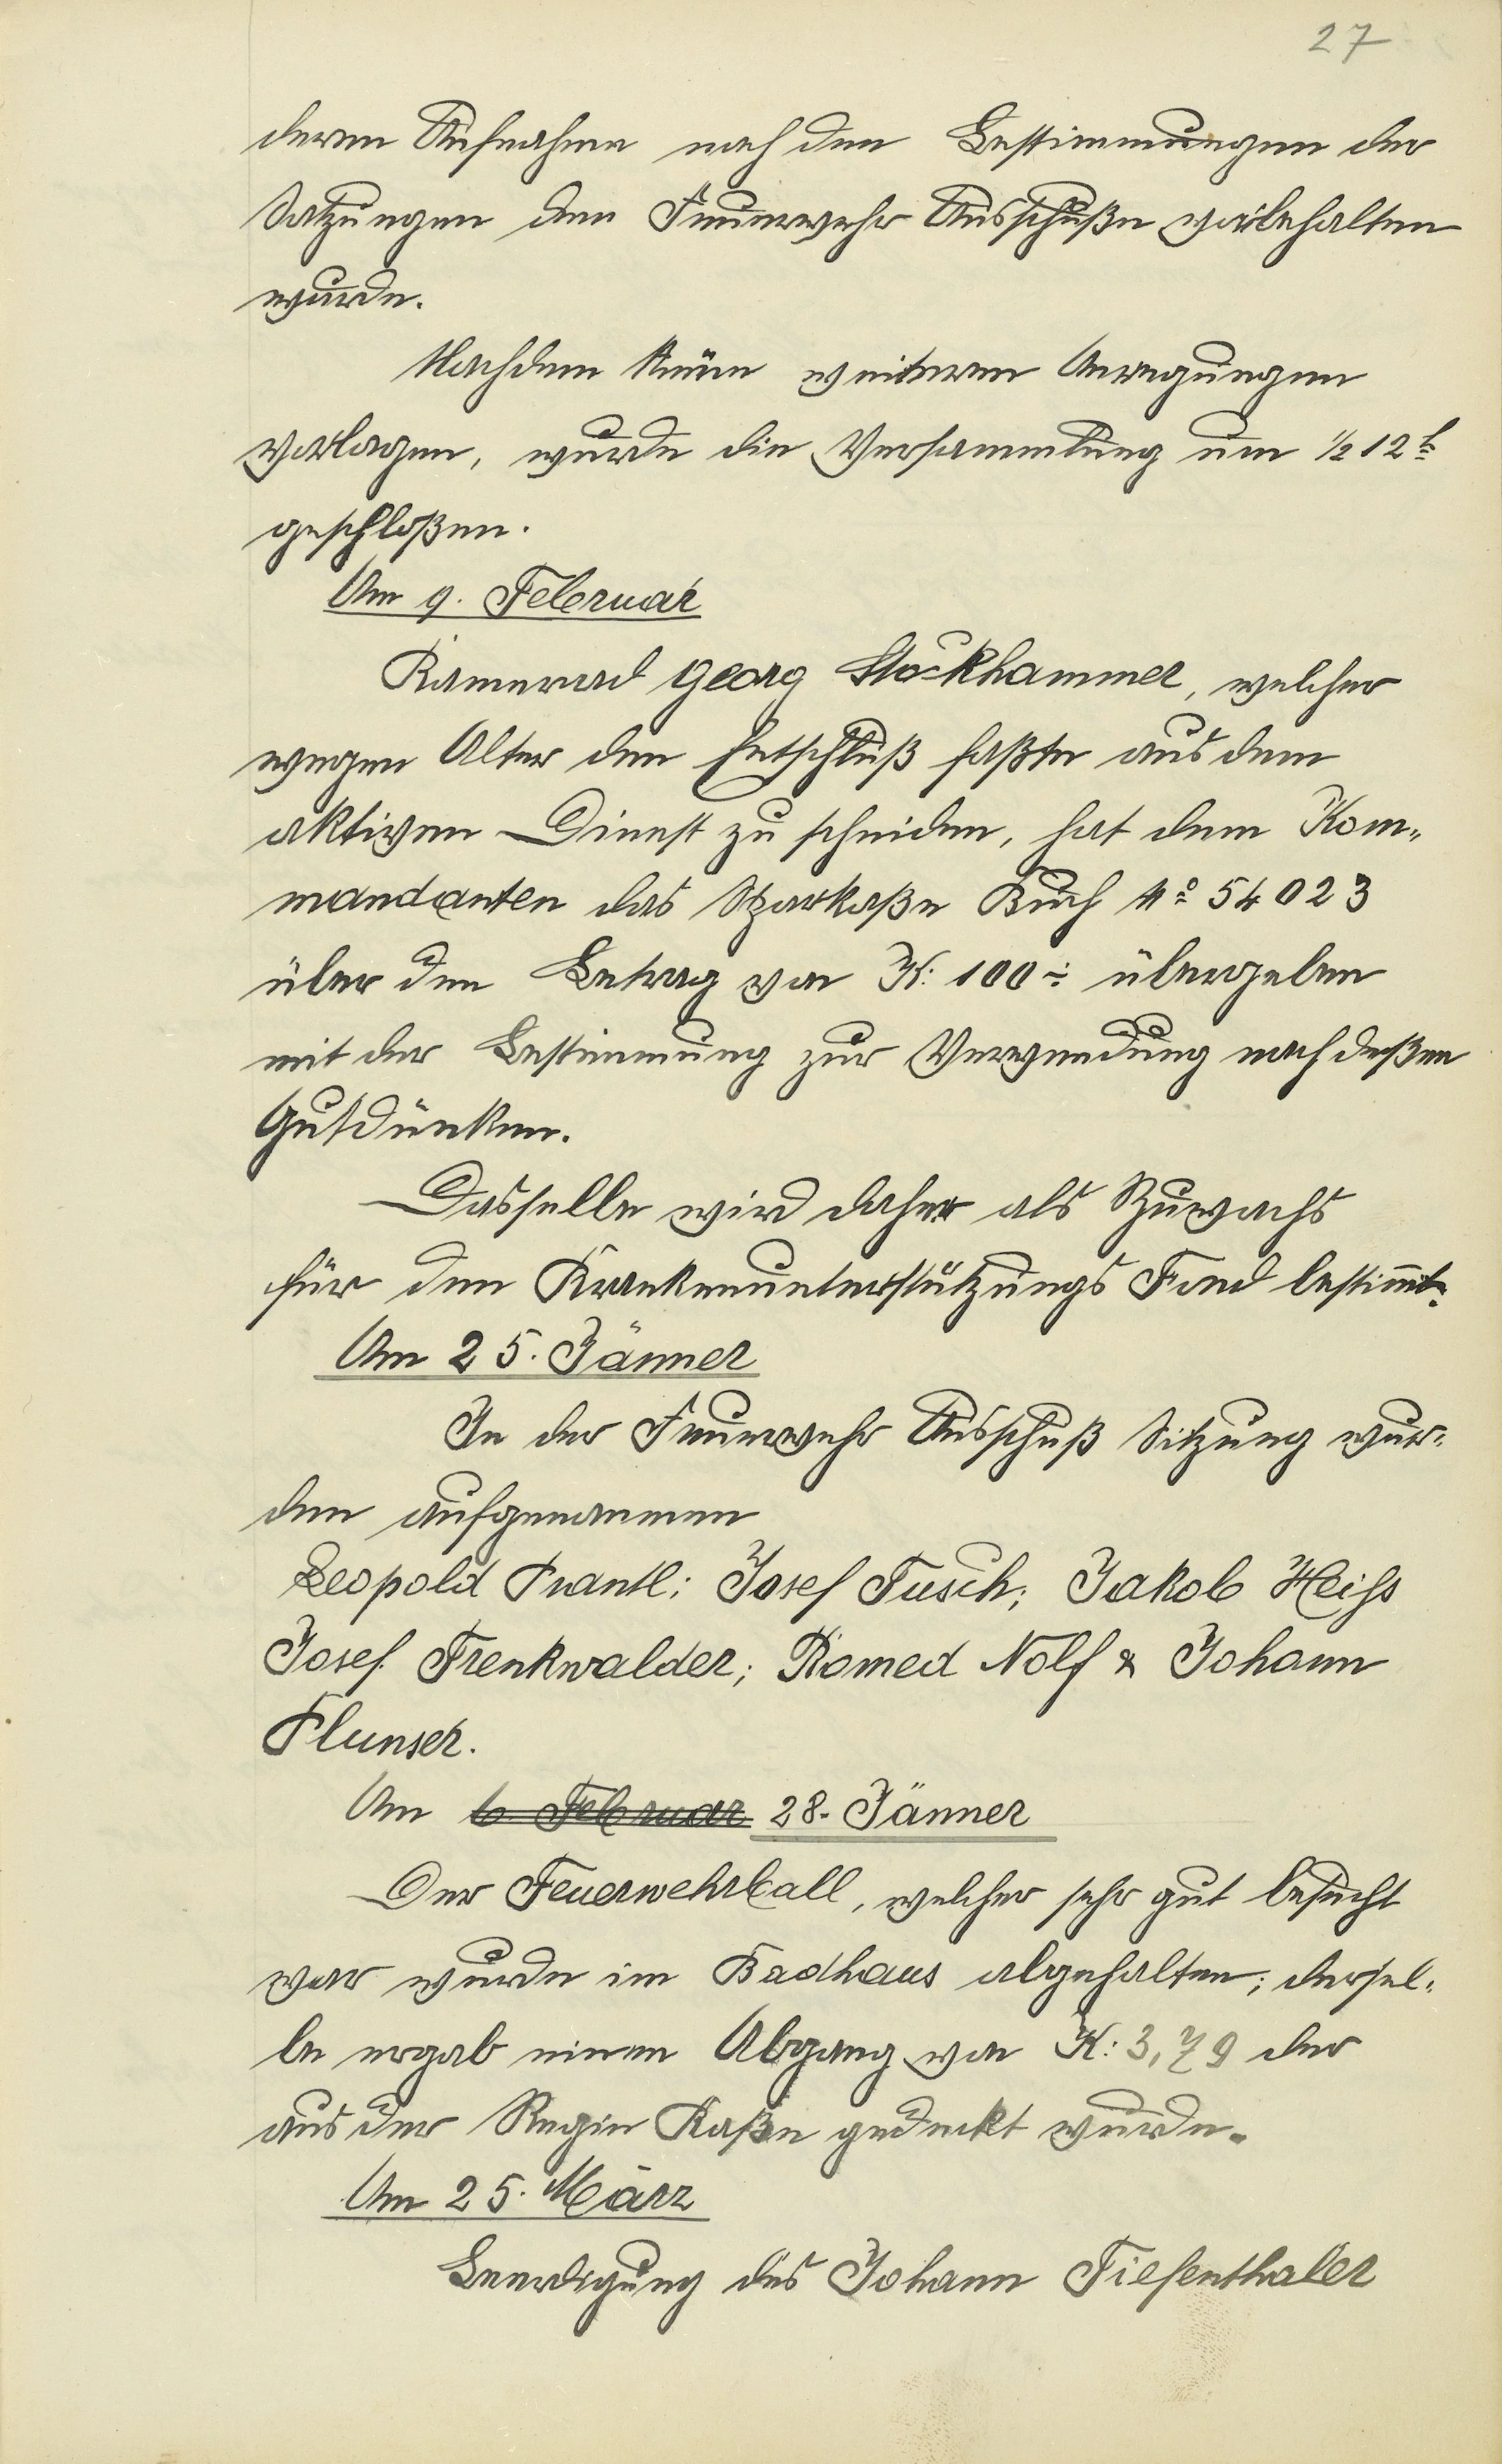 27
deren Aufnahme nach den Bestimmungen der
Satzungen dem Feuerwehr Ausschuße vorbehalten
wurde.
Nachdem keine weiteren Anregungen
vorlagen, wurde die Versammlung um ½ 12 h
geschloßen.
Am 9. Februar
Kamerad Georg Stöckhammer, welcher
wegen Alter den Entschluß faßte aus dem
aktiven Dienst zu scheiden, hat dem Kom„
mandanten das Sparkaße Buch No 54023
über den Betrag von K: 100÷ übergeben
mit der Bestimmung zur Verwendung nach deßen
Gutdünken.
Dasselbe wird daher als Zuwachs
für den Krankenunterstützungs Fond bestimmt.
Am 25. Jänner
In der Feuerwehr Ausschuß Sitzung wur„
den aufgenommen
Leopold Prantl; Josef Tusch; Jakob Heiss
Josef Trenkwalder; Romed Nolf & Johann
Plunser.
Am 6 Februar 28. Jänner
Der Feuerwehrball, welcher sehr gut besucht
war wurde im Badhaus abgehalten; dersel„
be ergab einen Abgang von K: 3,79 der
aus der Regie Kaße gedeckt wurde.
Am 25. März
Beerdigung des Johann Tiefenthaler